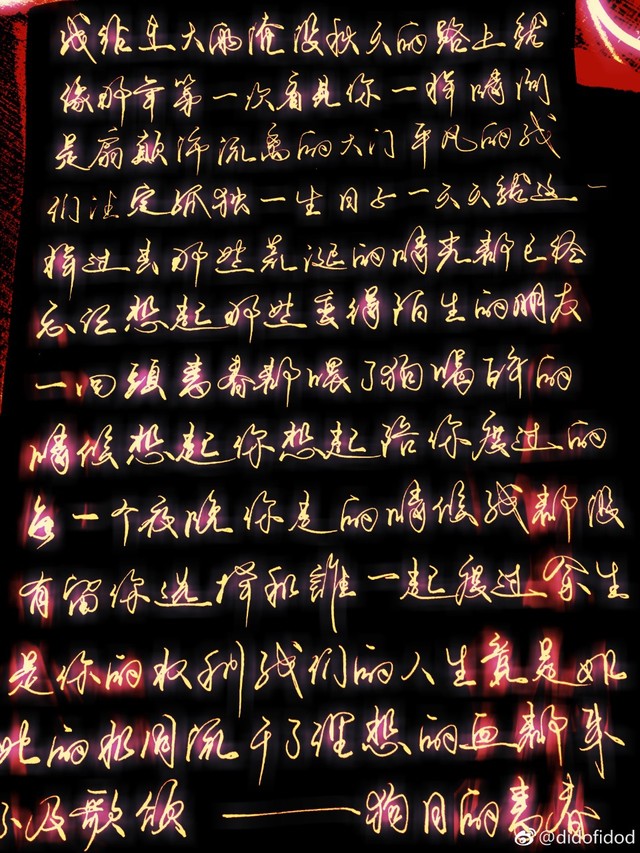 在大雨淹没秋天的路上就
像那年第一次看見你一样時间
是扇颠沛流离的大门平凡的我
们注定孤独一生日子一天天就这一
样过去那些荒诞的時光都已经
忘记想起那些变得陌生的朋友
一回頭青春都喂了狗喝的
時候想起你想起陪你度过的
每一个夜晚你走的時候我都没
有留你选择和誰一起度过余生
是你的权利我们的人生竟是如
此的相同流干了理想的血都来
不及歌颂 ——狗日的青春
@didofidod